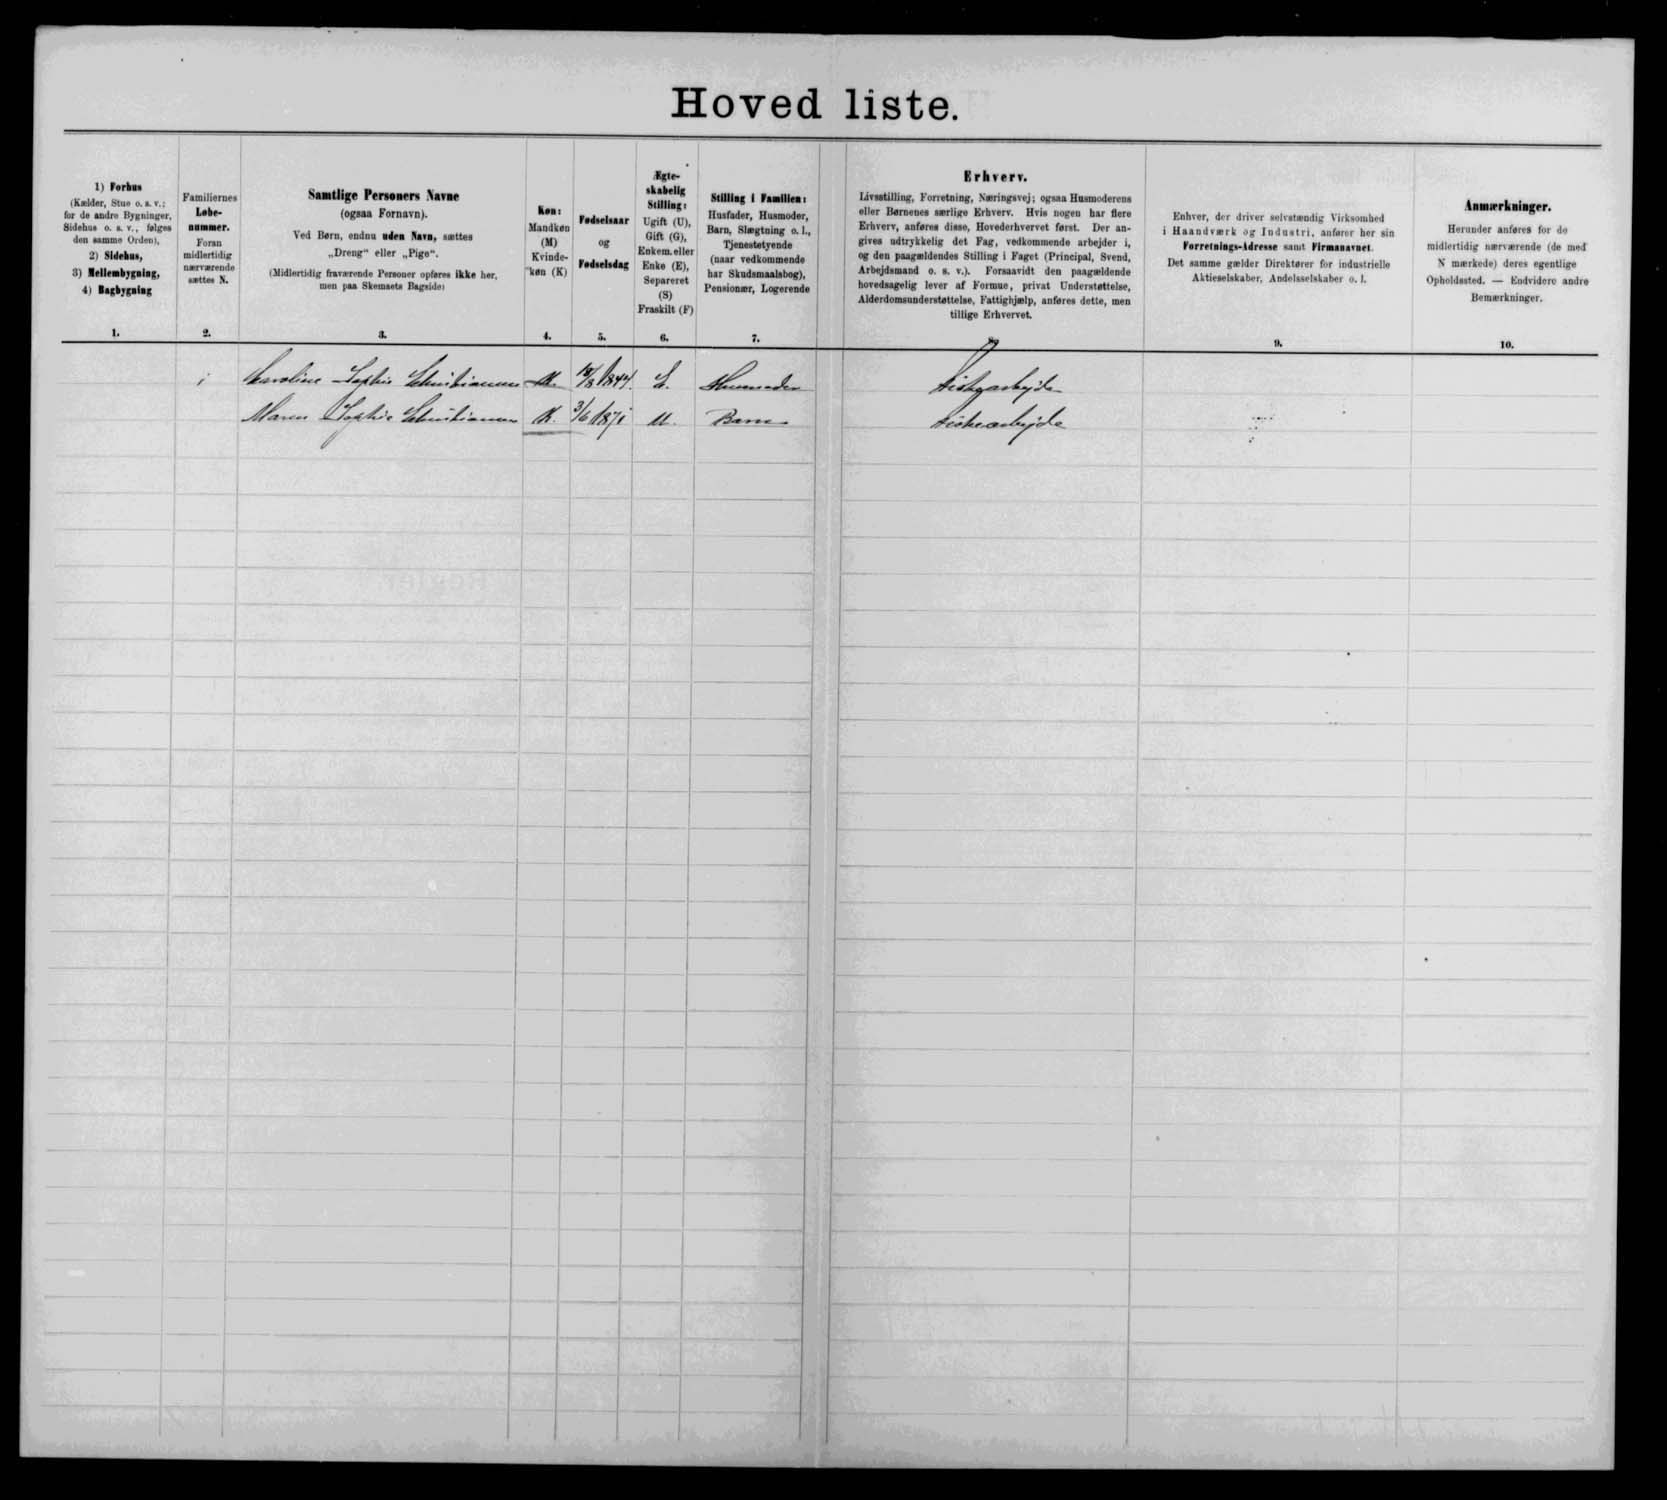 Hoved liste.
1) Forhus
(Kælder, Stue o. s. v.;
for de andre Bygninger,
Sidehus o. s. v., følges
den samme Orden),
2) Sidehus,
3) Mellembygning,
4) Bagbygning
1.
Familiernes
Løbe-
nummer.
Foran
midlertidig
nærværende
sættes N.
2.
Samtlige Personers Navne
(ogsaa Fornavn).
Ved Børn, endnu uden Navn, sættes
„Dreng“ eller „Pige“.
(Midlertidig fraværende Personer opføres ikke her,
men paa Skemaets Bagside)
3.
Køn:
Mandkøn
(M)
Kvinde-
køn (K)
4.
Fødselsaar
og
Fødselsdag
5.
Ægte-
skabelig
Stilling:
Ugift (U),
Gift (G),
Enkem. eller
Enke (E),
Separeret
(S)
Fraskilt (F)
6.
Stilling i Familien:
Husfader, Husmoder,
Barn, Slægtning o. l.,
Tjenestetyende
(naar vedkommende
har Skudsmaalsbog),
Pensionær, Logerende
7.
Erhverv.
Livsstilling, Forretning, Næringsvej; ogsaa Husmoderens
eller Børnenes særlige Erhverv. Hvis nogen har flere
Erhverv, anføres disse, Hovederhvervet først. Der an-
gives udtrykkelig det Fag, vedkommende arbejder i,
og den paagældendes Stilling i Faget (Principal, Svend,
Arbejdsmand o. s. v.). Forsaavidt den paagældende
hovedsagelig lever af Formue, privat Understøttelse,
Alderdomsunderstøttelse, Fattighjælp, anføres dette, men
tillige Erhvervet.
Enhver, der driver selvstændig Virksomhed
i Haandværk og Industri, anfører her sin
Forretnings-Adresse samt Firmanavnet.
Det samme gælder Direktører for industrielle
Aktieselskaber, Andelsselskaber o. l.
9.
Anmærkninger.
Herunder anføres for de
midlertidig nærværende (de med
N mærkede) deres egentlige
Opholdssted. — Endvidere andre
Bemærkninger.
10.
Caroline Sophie Christiansen K. E. Husmoder
Maren Sophie Christiansen K. 3/6 1871 U. Barn